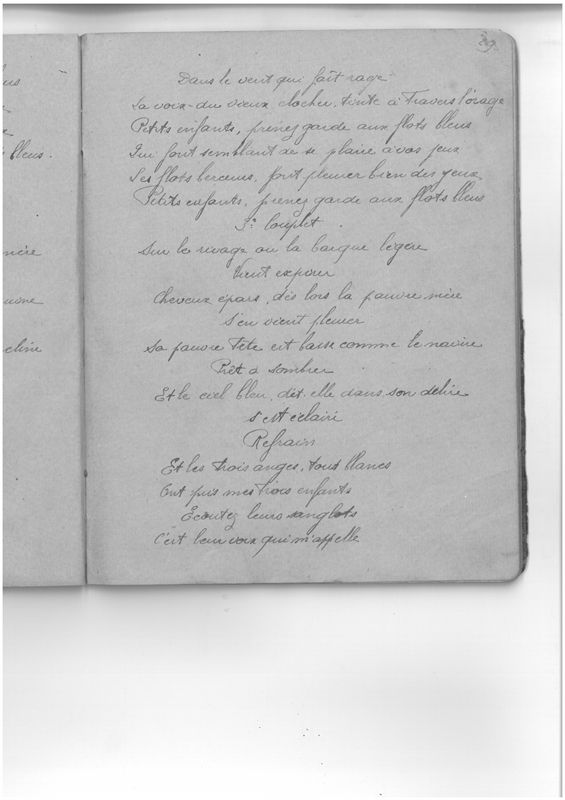 29.
Dans le vent qui fait rage
La voix du vieux clocher, tinte à Travers l'orage
Petits enfants, prenez garde aux flots bleus
Qui font semblant de se plaire à vos jeux
Les flots berceurs, font pleurer bien des yeux
Petits enfants, prenez garde aux flots bleus
couplet.
Sur le rivage ou la barque légère
Vient
Cheveux épars, dès lors la pauvre mère
S'en vient pleurer
Sa pauvre Tête est lasse comme le navire
Prêt à sombrer
Et le ciel bleu, dit-elle dans son délire
s'est éclairé
Refrain
Et les trois anges, tous blancs
Ont pris mes trois enfants
Écoutez leurs sanglots
C'est leur voix qui m'appelle
bleus.
mère